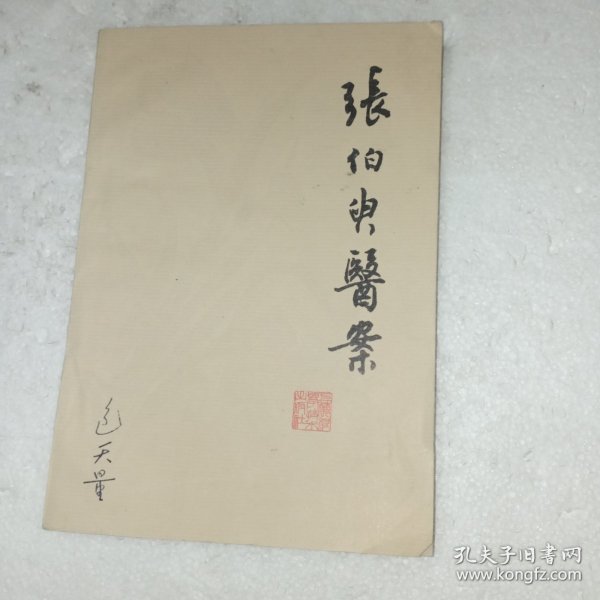 張伯臾醫案
包天量
孔夫子旧书网
www.kongfz.com